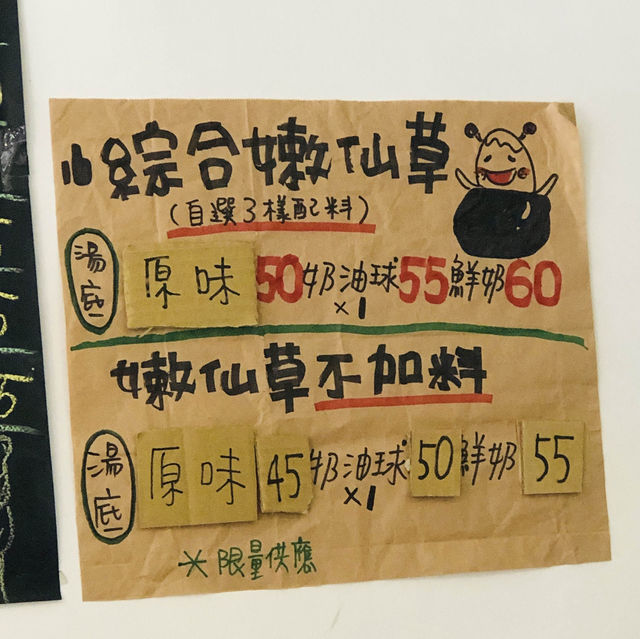 綜合嫩仙草
(自選3樣配料)
湯底 原味 50 奶油球x1 55 鮮奶 60
嫩仙草不加料
湯底 原味 45 奶油球x1 50 鮮奶 55
*限量供應